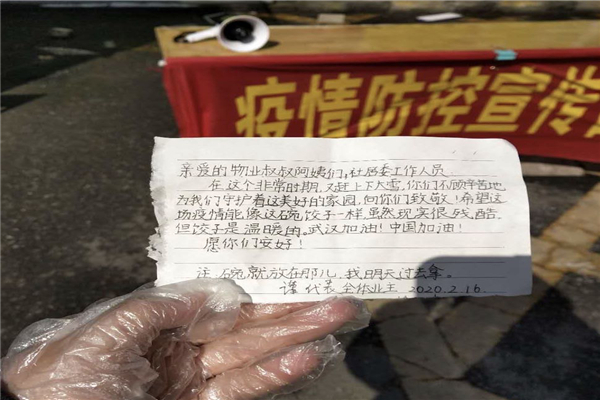 疫情防控宣传
亲爱的物业叔叔阿姨们,社居委工作人员
在这个非常时期,又赶上下大雪,你们不顾辛苦地
为我们守护着这美好的家园,向你们致敬!希望这
场疫情能像这碗饺子一样,虽然现实很残酷
但饺子是温暖的。武汉加油!中国加油!
愿你们安好!
注:碗就放在那儿,我明天过去拿。
谨代表全体业主 2020.2.16.